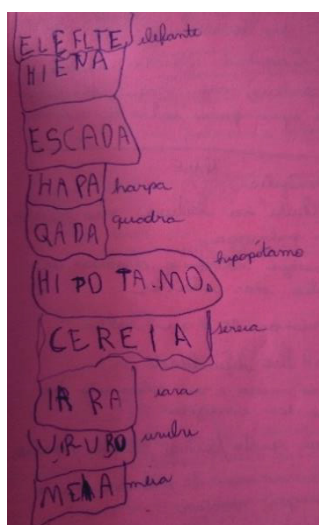 ELEFLTE elefante
HIENA
ESCADA
HAPA harpa
QADA quadra
HIPOTA.MO. hipopótamo
CEREIA sereia
IRRA iara
URUBO urubu
MEIA meia